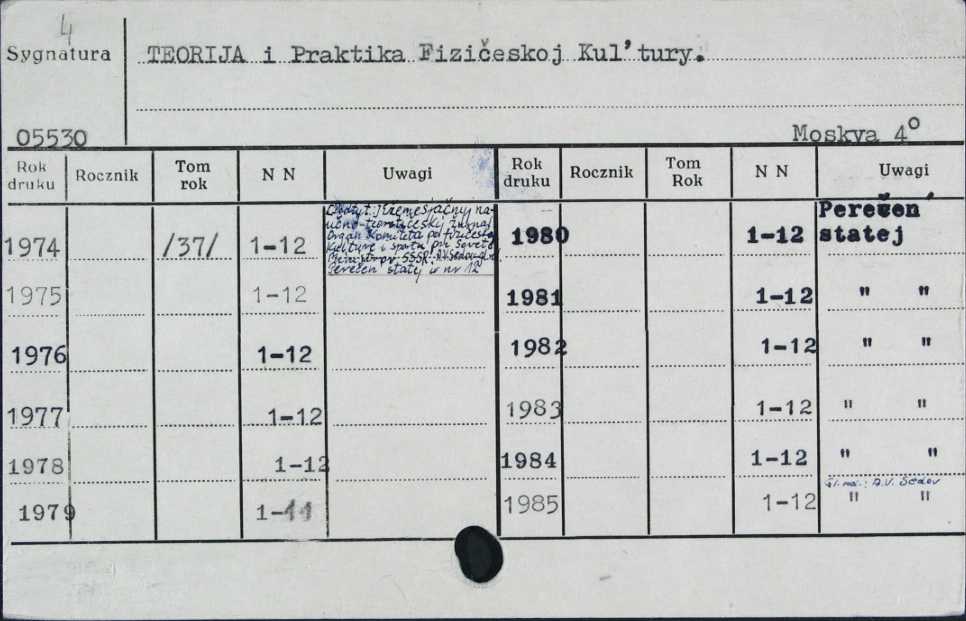 4
Sygnatura TEORIJA i Praktika Fizičeskoj Kul'tury.
05530 Moskva 4°
Rok druku Rocznik Tom rok N N Uwagi Rok druku Rocznik Tom Rok N N Uwagi
1974 /37/ 1-12
organ Komiteta po fizičesk.
kulture i sportu pri Sovete
Ministrov SSSR. A.V. Sedov
Perečen statej w nr 12
1975 1-12
1976 1-12
1977 1-12
1978 1-12
1979 1-11
1980 1-12 Perečen' statej
1981 1-12 " "
1982 1-12 " "
1983 1-12 " "
1984 1-12 " "
Gl. red.: A.V. Sedov
1985 1-12 " "